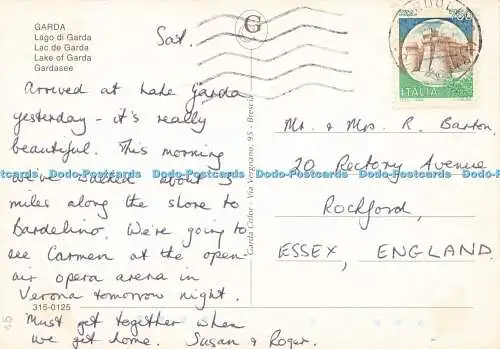 GARDA
Lago di Garda
Lac de Garda
Lake of Garda
Gardasee
Sat.
Arrived at Lake Garda
yesterday - it's really
beautiful. This morning
we've walked about 3
miles along the shore to
Bardelino. We're going to
see Carmen at the open-
air opera arena in
Verona tomorrow night.
315-0125
Must get together when
we get home. Susan & Roger.
G
Garda Color - Via Vergnano, 95 - Brescia
ITALIA
Mr. & Mrs. R. Barton,
20 Rectory Avenue
Rochford,
ESSEX, ENGLAND.
Dodo-Postcards Dodo-Postcards Dodo-Postcards Dodo-Postcards Dodo-Postcards Dodo-Postcards